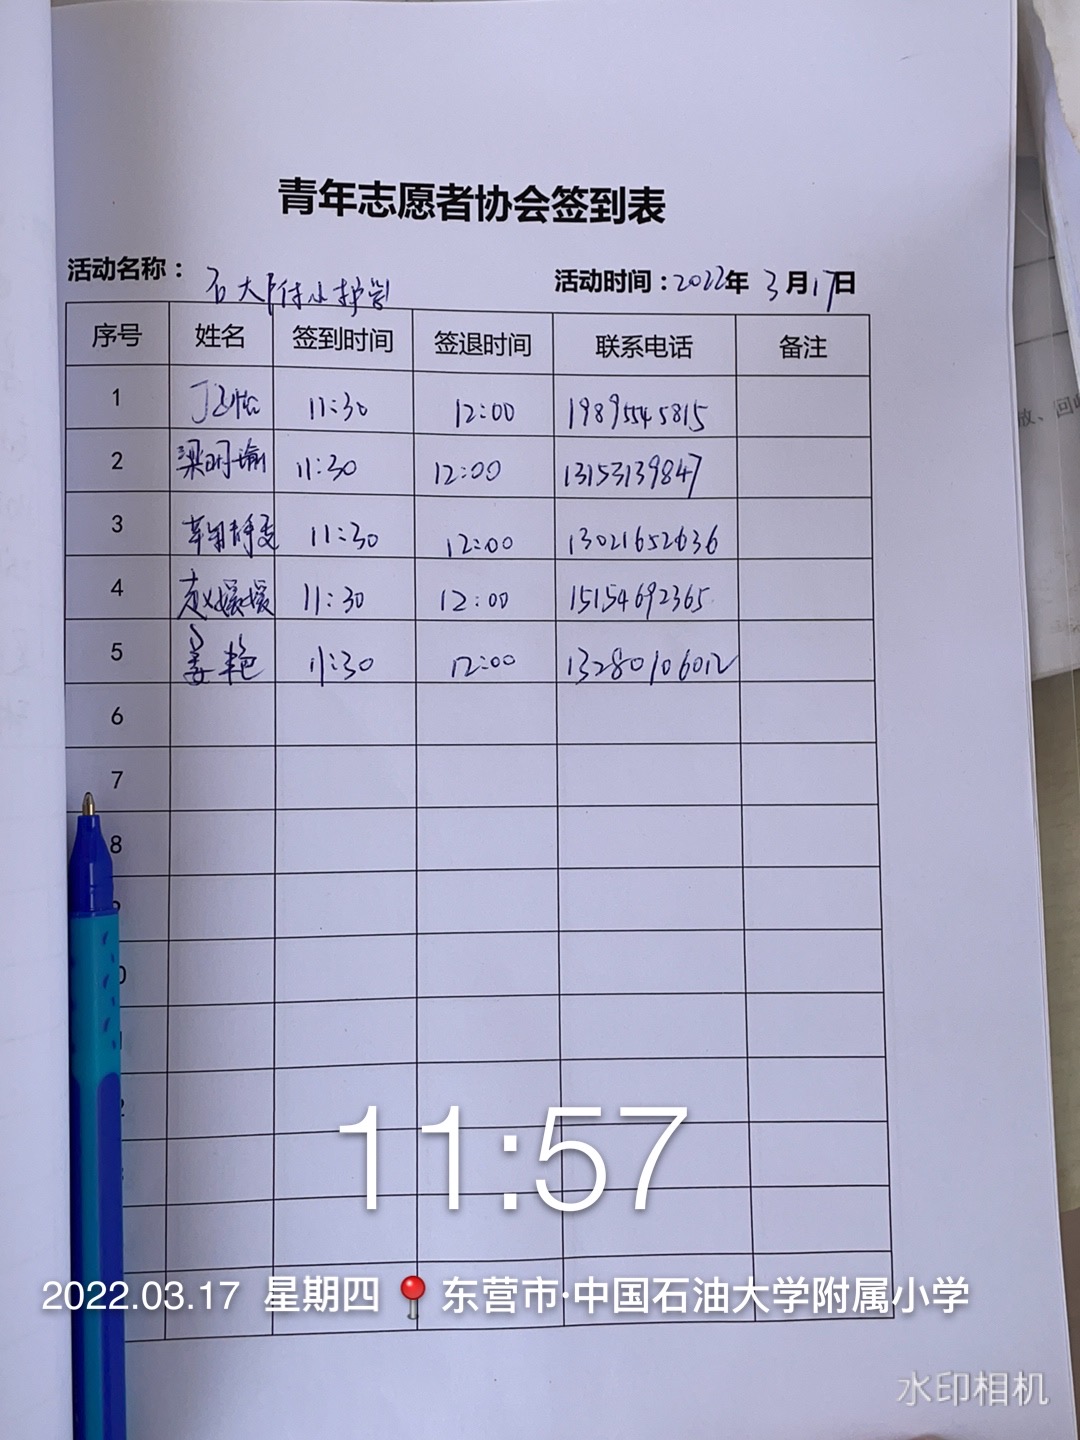 青年志愿者协会签到表
活动名称：石大附小护学 活动时间：2022年 3月17日
序号 姓名 签到时间 签退时间 联系电话 备注
1 11:30 12:00 19895545815
2 梁明瑜 11:30 12:00 13153139847
3 11:30 12:00 13021652636
4 赵媛媛 11:30 12:00 15154692365
5 姜艳 11:30 12:00 13280106012
6
7
8
11:57
2022.03.17 星期四 东营市·中国石油大学附属小学
水印相机